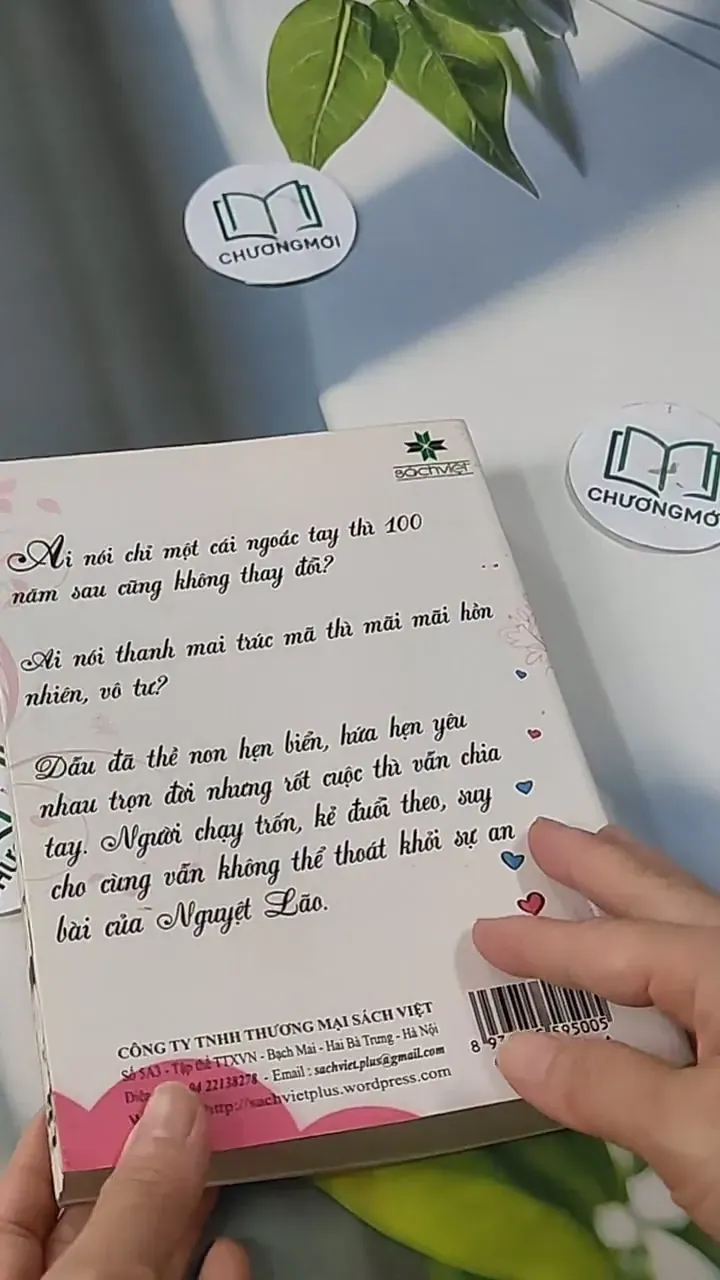 CHƯƠNGMỚI
CHƯƠNGMỚ
sáchviệt
Ai nói chỉ một cái ngoắc tay thì 100
năm sau cũng không thay đổi?
Ai nói thanh mai trúc mã thì mãi mãi hồn
nhiên, vô tư?
Dẫu đã thề non hẹn biển, hứa hẹn yêu
nhau trọn đời nhưng rốt cuộc thì vẫn chia
tay. Người chạy trốn, kẻ đuổi theo, suy
cho cùng vẫn không thể thoát khỏi sự an
bài của Nguyệt Lão.
CÔNG TY TNHH THƯƠNG MẠI SÁCH VIỆT
Số 5A3 - Tập thể TTXVN - Bạch Mai - Hai Bà Trưng - Hà Nội
94 22138278 - Email : sachviet.plus@gmail.com
http://sachvietplus.wordpress.com
595005